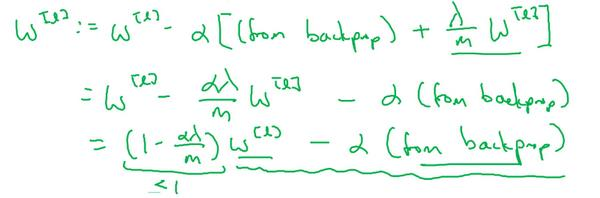 W^[l] := W^[l] - α[(from backprop) + λ/m W^[l]]
= W^[l] - αλ/m W^[l] - α(from backprop)
= (1 - αλ/m) W^[l] - α(from backprop)
<1